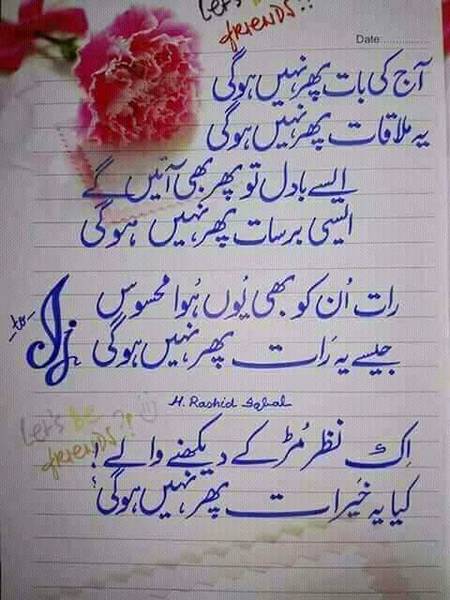 Let's be
friends?!
Date:
آج کی بات پھر نہیں ہوگی
یہ ملاقات پھر نہیں ہوگی
ایسے بادل تو پھر بھی آئیں گے
ایسی برسات پھر نہیں ہوگی
رات اُن کو بھی یُوں ہُوا محسوس
جیسے یہ رَات پھر نہیں ہوگی
to
H. Rashid Iqbal
Let's be
friends?!
اِک نظر مُڑ کے دیکھنے والے!
کیا یہ خَیرات پھر نہیں ہوگی؟